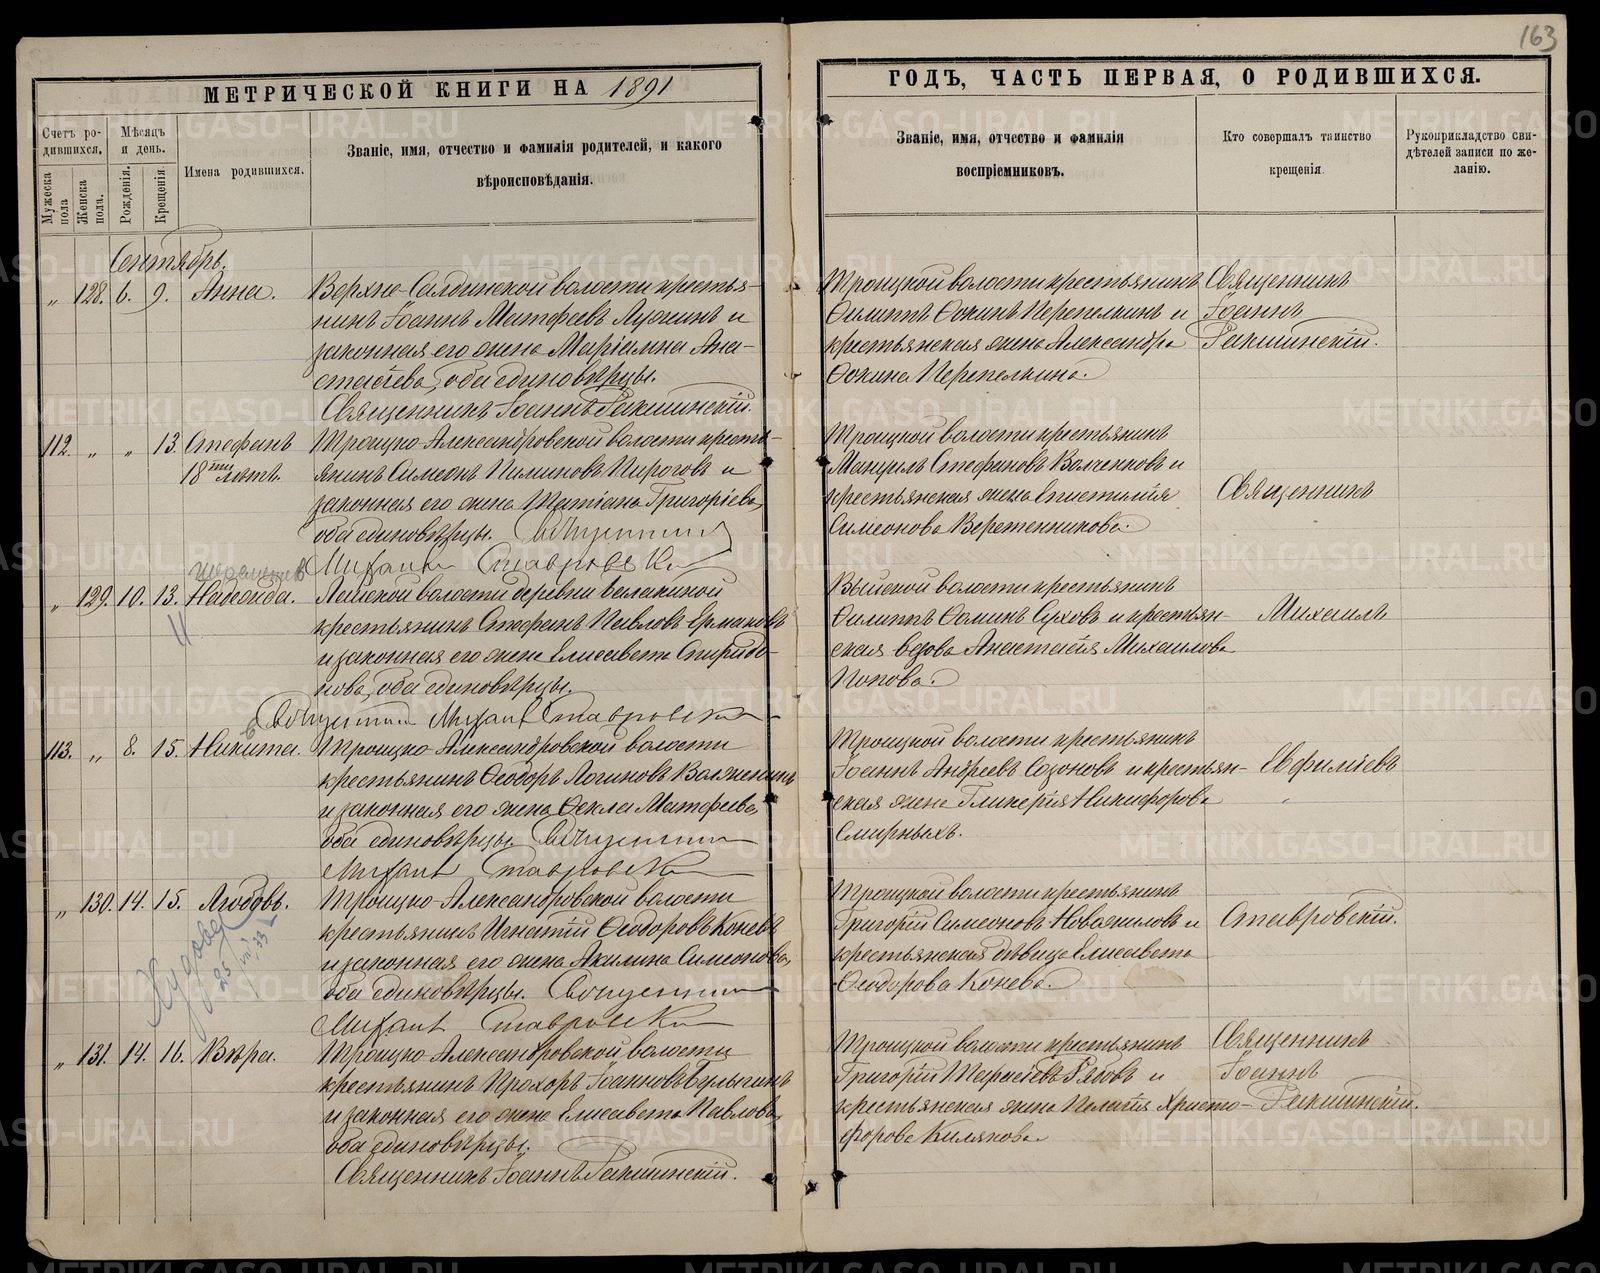 163
МЕТРИЧЕСКОЙ КНИГИ НА 1891
ГОДЪ, ЧАСТЬ ПЕРВАЯ, О РОДИВШИХСЯ.
Счетъ родившихся.
Мужеска пола
Женска пола.
Мѣсяцъ и день.
Рожденія.
Крещенія
Имена родившихся.
Званіе, имя, отчество и фамилія родителей, и какого
вѣроисповѣданія.
Званіе, имя, отчество и фамилія
воспріемниковъ.
Кто совершалъ таинство
крещенія
Рукоприкладство сви-
дѣтелей записи по же-
ланію.
Сентябрь.
„ 128. 6. 9. Анна.
Верхне-Салдинской волости крестья-
нинъ Іоаннъ Матфеевъ и
законная его жена Маріамна Ана-
стасіева, оба единовѣрцы.
Священникъ Іоаннъ Ракшинскій.
Троицкой волости крестьянинъ
Филиппъ Фокинъ Перепелкинъ и
крестьянская жена Александра
Фокина Перепелкина.
Священникъ
Іоаннъ
Ракшинскій.
112. „ „ 13. Стефанъ
18ти лѣтъ.
Троицко-Александровской волости кресть-
янинъ Симеонъ Пироговъ и
законная его жена Татіана Григоріева,
оба единовѣрцы.
Михаил Ставровский
Троицкой волости крестьянинъ
Мануилъ Стефановъ Волченковъ и
крестьянская жена Епистилія
Симеонова Веретенникова.
Священникъ
„ 129. 10. 13. Надежда.
Лайской волости деревни
крестьянинъ Стефанъ Павловъ Ермаковъ
и законная его жена Елисавета Спиридо-
нова, оба единовѣрцы.
Михаил Ставровский
Выйской волости крестьянинъ
Филиппъ Фоминъ Суховъ и крестьян-
ская вдова Анастасія Михаилова
Попова.
Михаилъ
113. „ 8. 15. Никита.
Троицко-Александровской волости
крестьянинъ Феодоръ Логиновъ
и законная его жена Фекла Матфеева,
оба единовѣрцы.
Михаил Ставровский
Троицкой волости крестьянинъ
Іоаннъ Андреевъ Созоновъ и крестьян-
ская жена Гликерія Никифорова
Смирныхъ.
Евфиміевъ
„ 130. 14. 15. Любовь.
Троицко-Александровской волости
крестьянинъ Игнатій Феодоровъ Коневъ
и законная его жена Акилина Симеонова,
оба единовѣрцы.
Михаил Ставровский
Троицкой волости крестьянинъ
Григорій Симеоновъ Новоселовъ и
крестьянская дѣвица Елисавета
Феодорова Конева.
Ставровскій.
„ 131. 14. 16. Вѣра.
Троицко-Александровской волости
крестьянинъ Прохоръ Іоанновъ
и законная его жена Елисавета Павлова,
оба единовѣрцы.
Священникъ Іоаннъ Ракшинскій.
Троицкой волости крестьянинъ
Григорій Тарасіевъ и
крестьянская жена Пелагія Христо-
форова Килякова.
Священникъ
Іоаннъ
Ракшинскій.
METRIKI.GASO-URAL.RU